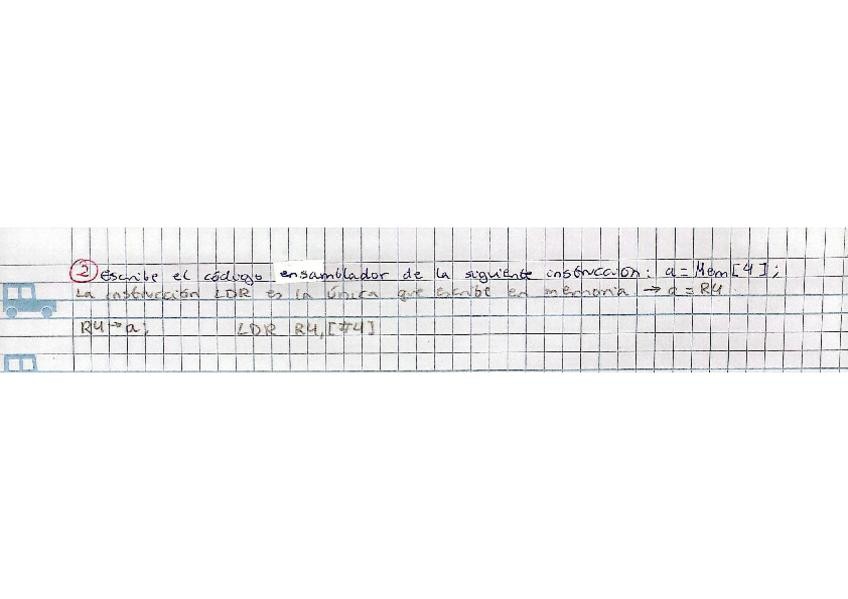 2 Escribe el código ensamblador de la siguiente instrucción: a = Mem[4];
La instrucción LDR es la única que escribe en memoria → a = R4
R4 → a; LDR R4, [#4]